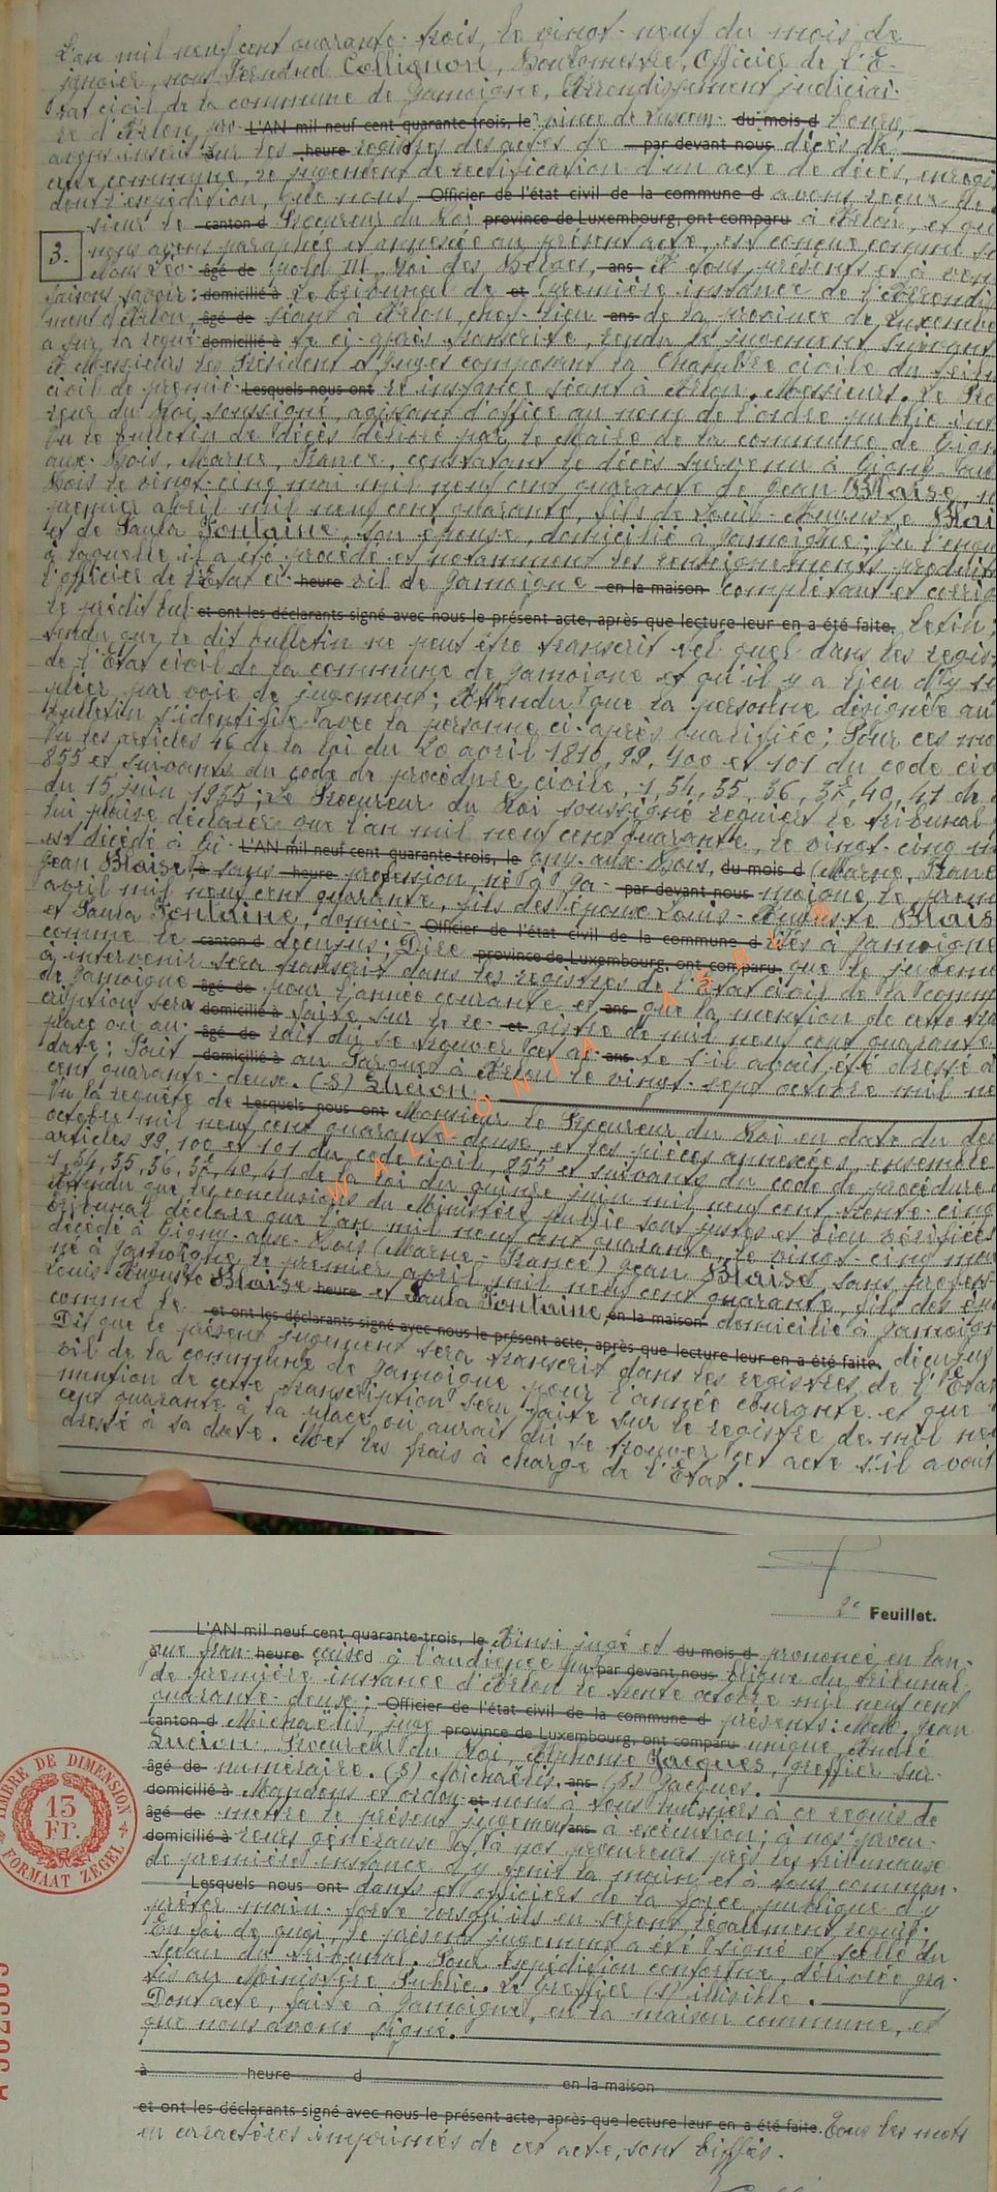 L'an mil neuf cent quarante-trois, le vingt-neuf du mois de
janvier, nous Fernand Collignon, Bourgmestre, Officier de l'É-
tat civil de la commune de Jamoigne, Arrondissement judiciai-
re d'Arlon, pro- L'AN mil neuf cent quarante-trois, le vince de Luxem- du mois d bourg,
avons inscrit sur les heure registres des actes de par devant nous décès de
cette commune, le jugement de rectification d'un acte de décès, enregi
dont l'expédition, que nous Officier de l'état civil de la commune d avons reçue de
sieur le canton d Procureur du Roi province de Luxembourg, ont comparu à Arlon, et que
3. nous avons paraphée et annexée au présent acte, est conçue comme
Nous Léo- âgé de pold III, Roi des Belges, ans à tous présents et à ven
faisons savoir: domicilié à Le tribunal de et première instance de l'Arrondi
ment d'Arlon, âgé de séant à Arlon, chef-lieu ans de la province de Luxembo
a sur la requê- domicilié à te ci-après transcrite, rendu le jugement suivant
A Messieurs les Président et Juges composant la Chambre civile du
civil de premiè- Lesquels nous ont re instance séant à Arlon. Messieurs. Le Pro
reur du Roi soussigné, agissant d'office au nom de l'ordre public
Vu le bulletin de décès délivré par le Maire de la commune de Gign
aux-Bois, Marne, France, constatant le décès survenu à Gigny-aux
Bois le vingt-cinq mai mil neuf cent quarante de Jean Blaise, n
premier avril mil neuf cent quarante, fils de Louis-Auguste Blai
et de Paula Fontaine, son épouse, domicilié à Jamoigne; Vu l'enqu
à laquelle il a été procédé et notamment les renseignements produits
l'officier de l'Etat ci- heure vil de Jamoigne en la maison complétant et corrig
le prédit bul- et ont les déclarants signé avec nous le présent acte, après que lecture leur en a été faite, letin;
tendu que le dit bulletin ne peut être transcrit tel quel dans les regis
de l'État civil de la commune de Jamoigne et qu'il y a lieu d'y
pléer par voie de jugement; Attendu que la personne désignée au
bulletin s'identifie avec la personne ci-après qualifiée; Pour ces mo
Vu les articles 46 de la loi du 20 avril 1810, 99, 100 et 101 du code civ
855 et suivants du code de procédure civile, 1, 34, 35, 36, 37, 40, 41 de
du 15 juin 1935; Le Procureur du Roi soussigné requiert le tribunal
lui plaise déclarer que l'an mil neuf cent quarante, le vingt-cinq m
est décédé à Gi- L'AN mil neuf cent quarante-trois, le gny-aux-Bois, du mois d (Marne, Franc
Jean Blaise, à sans heure profession, né à Ja- par devant nous moigne, le prem
avril mil neuf cent quarante, fils des époux Louis-Auguste Blais
et Paula Fontaine, domici- Officier de l'état civil de la commune d liés à Jamoigne
comme le canton d decujus; Dire province de Luxembourg, ont comparu que le jugeme
à intervenir sera transcrit dans les registres de l'État civil de la comm
de Jamoigne âgé de pour l'année courante et ans que la mention de cette tra
cription sera domicilié à faite sur le re- et gistre de mil neuf cent quarante
place où au- âgé de rait dû se trouver cet ac- ans te s'il avait été dressé à
date; Fait domicilié à au Parquet à Arlon le vingt-sept octobre mil ne
cent quarante-deux. (S) Lucion.
Vu la requête de Lesquels nous ont Monsieur le Procureur du Roi en date du
octobre mil neuf cent quarante-deux, et les pièces annexées, ensemble
articles 99, 100 et 101 du code civil, 855 et suivants du code de procédure
1, 34, 35, 36, 37, 40, 41 de la loi du quinze juin mil neuf cent trente-cinq
Attendu que les conclusions du Ministère public sont justes et bien vérifiées
tribunal déclare que l'an mil neuf cent quarante, le vingt-cinq mai
décédé à Gigny-aux-Bois (Marne-France) Jean Blaise, sans profess
né à Jamoigne, le premier avril mil neuf cent quarante, fils des ép
Louis-Auguste Blaise heure et Paula Fontaine en la maison domicilié à Jamoign
comme le et ont les déclarants signé avec nous le présent acte, après que lecture leur en a été faite. dicujus
Dit que le présent jugement sera transcrit dans les registres de l'État
vil de la commune de Jamoigne pour l'année courante et que
mention de cette transcription sera faite sur le registre de mil ne
cent quarante à la place où aurait dû se trouver cet acte s'il avait
dressé à sa date. Met les frais à charge de l'État.
WALLONIA ASBL
2e Feuillet.
L'AN mil neuf cent quarante-trois, le Ainsi jugé et du mois d prononcé en lan-
gue fran- heure çaise d à l'audience pu- par devant nous blique du tribunal
de première instance d'Arlon le trente octobre mil neuf cent
quarante-deux; Officier de l'état civil de la commune d présents: MM. Jean
canton d Michaëlis, juge province de Luxembourg, ont comparu unique, André
Lucion, Procureur du Roi, Alphonse Jacques, greffier sur-
âgé de numéraire. (S) Michaëlis. ans (S) Jacques.
domicilié à Mandons et ordon- et nons à tous huissiers à ce requis de
âgé de mettre le présent jugement ans à exécution; à nos procu-
domicilié à reurs généraux et à nos procureurs près les tribunaux
de première instance d'y tenir la main et à tous comman-
Lesquels nous ont dants et officiers de la force publique d'y
prêter main-forte lorsqu'ils en seront légalement requis.
En foi de quoi, le présent jugement a été signé et scellé du
sceau du tribunal. Pour expédition conforme, délivrée gra-
tis au Ministère Public. Le Greffier (S) illisible.
Dont acte, faite à Jamoigne, en la maison commune, et
que nous avons signé.
à heure d en la maison
et ont les déclarants signé avec nous le présent acte, après que lecture leur en a été faite. Tous les mots
en caractères imprimés de cet acte, sont biffés.
TIMBRE DE DIMENSION
15
Fr.
FORMAAT ZEGEL